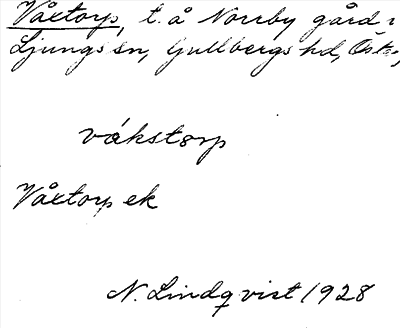 Våxtorp, t. å Norrby gård i
Ljungs sn, Gullbergs hd, Östg,
våkstorp
Våxtorp ek
N. Lindqvist 1928